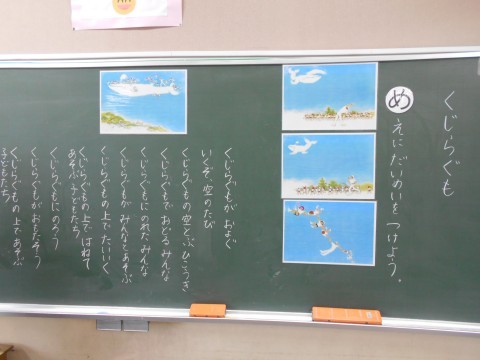 くじらぐも
め
えに だいめいを つけよう。
くじらぐもが およぐ
いくぞ 空のたび
くじらぐもの空とぶひこうき
くじらぐもで おどる みんな
くじらぐもに のれた みんな
くじらぐもが みんなと あそぶ
くじらぐもの上で たいいく
くじらぐもの上で はねて
あそぶ 子どもたち
くじらぐもに のろう
くじらぐもが おもたそう
くじらぐもの 上で あそぶ
子どもたち